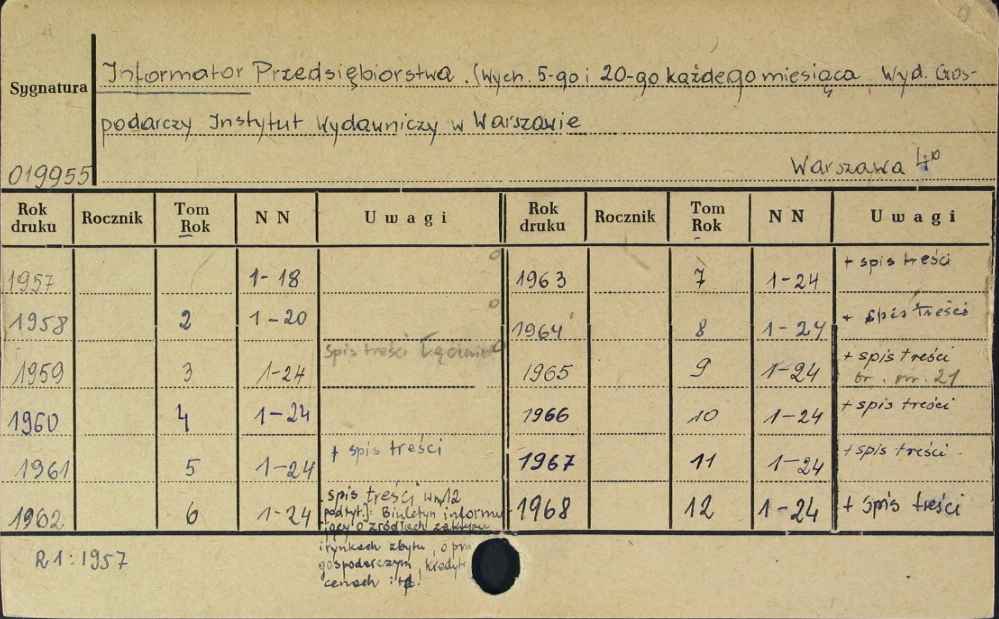 Sygnatura
019955
Informator Przedsiębiorstwa. (Wych. 5-go i 20-go każdego miesiąca Wyd. Gos-
podarczy Instytut Wydawniczy w Warszawie
Warszawa 4°
Rok druku Rocznik Tom Rok NN Uwagi
1957 1-18
1958 2 1-20
1959 3 1-24 Spis treści łącznie
1960 4 1-24
1961 5 1-24 + spis treści
1962 6 1-24 spis treści w nr 12
podtyt.: Biuletyn informu-
jący o źródłach zakupu
i rynkach zbytu, o
gospodarczym, kredyt
cenach itp.
Rok druku Rocznik Tom Rok NN Uwagi
1963 7 1-24 + spis treści
1964 8 1-24 + spis treści
1965 9 1-24 + spis treści
br. nr. 21
1966 10 1-24 + spis treści
1967 11 1-24 + spis treści
1968 12 1-24 + spis treści
R1:1957